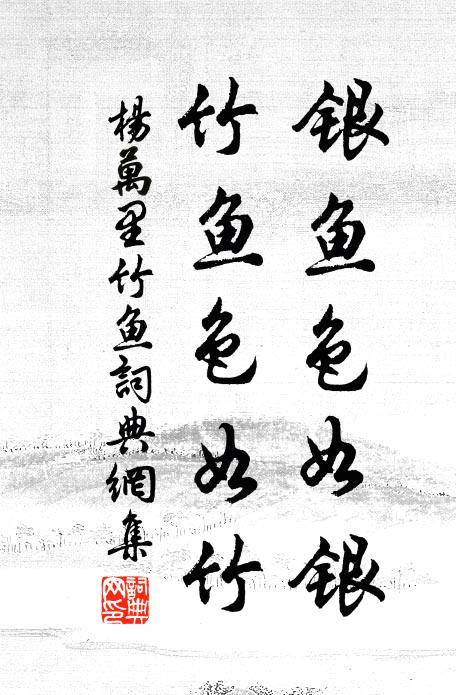 银鱼色如银
竹鱼色如竹
楊萬里竹鱼詞典網集
詞典网印